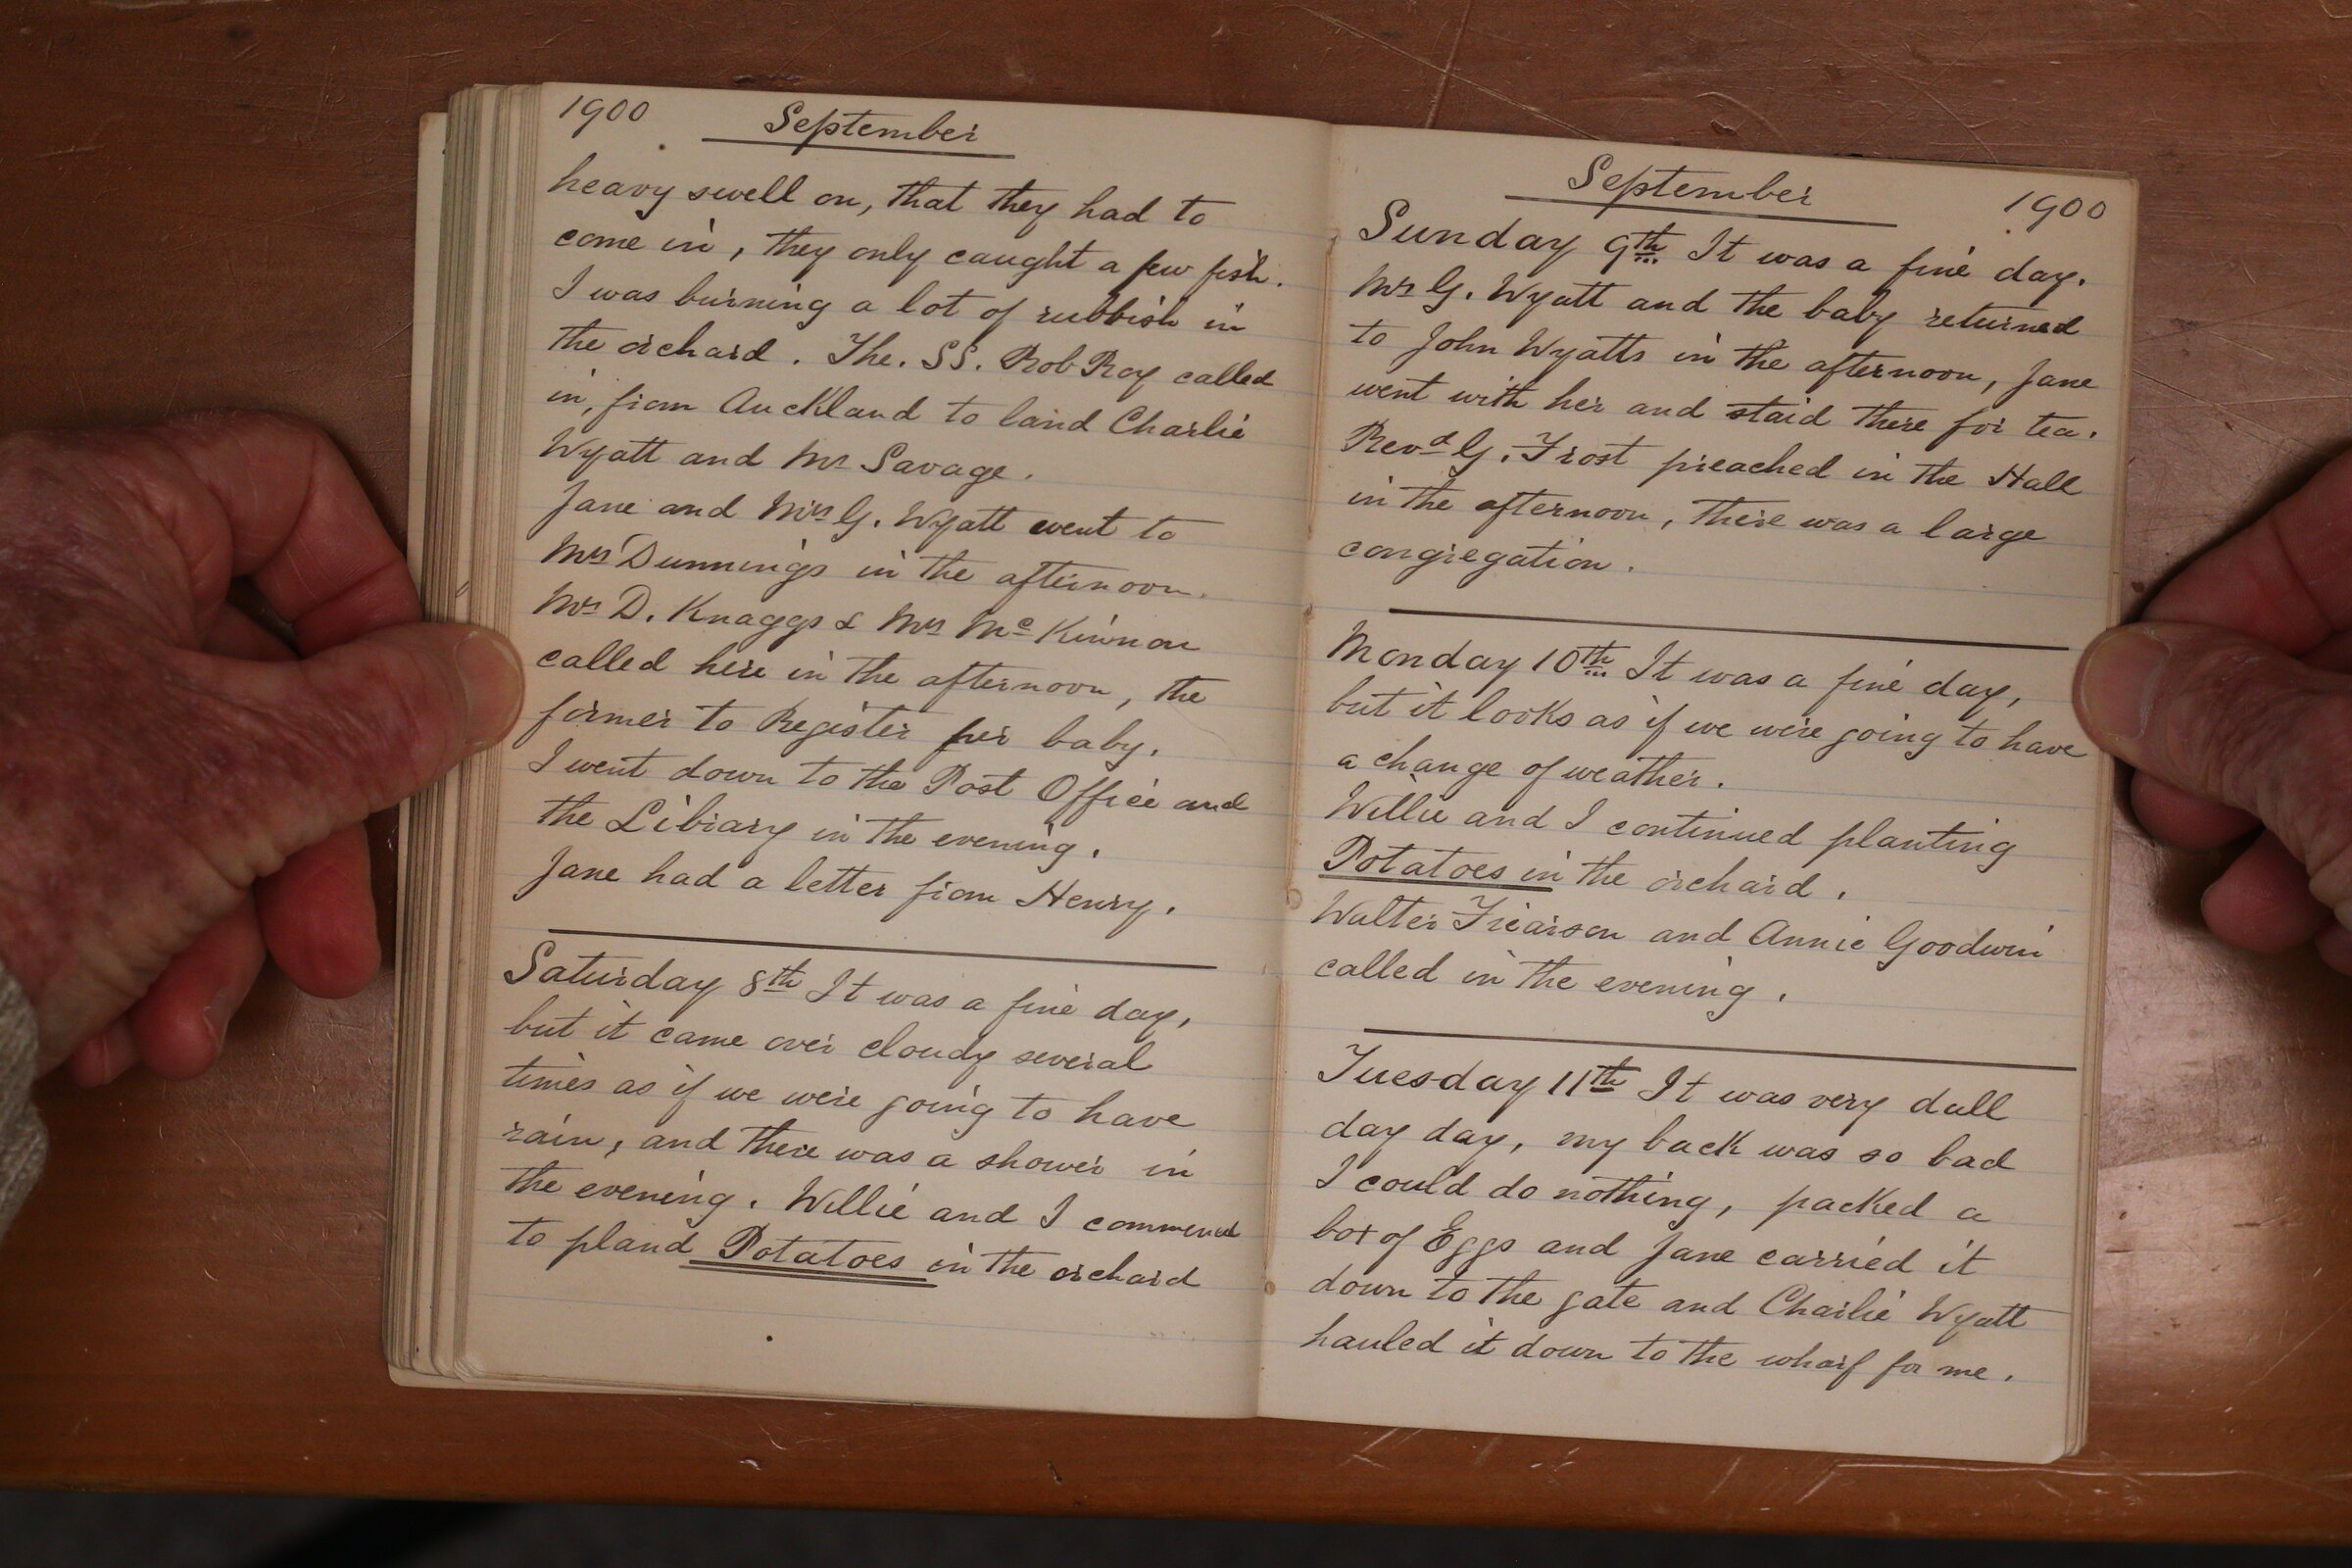 1900 September
heavy swell on, that they had to
come in, they only caught a few fish.
I was burning a lot of rubbish in
the orchard. The. SS. Rob Roy called
in, from Auckland to land Charlie
Wyatt and Mr Savage.
Jane and Mrs G. Wyatt went to
Mrs Dunnings in the afternoon.
Mrs D. Knaggs & Mrs McKinnon
called here in the afternoon, the
former to Register her baby.
I went down to the Post Office and
the Library in the evening.
Jane had a letter from Henry.
Saturday 8th It was a fine day,
but it came over cloudy several
times as if we were going to have
rain, and there was a shower in
the evening. Willie and I commenced
to pland Potatoes in the orchard
September 1900
Sunday 9th It was a fine day.
Mrs G. Wyatt and the baby returned
to John Wyatts in the afternoon, Jane
went with her and staid there for tea.
Revd G. Frost preached in the Hall
in the afternoon, there was a large
congregation.
Monday 10th It was a fine day,
but it looks as if we were going to have
a change of weather.
Willie and I continued planting
Potatoes in the orchard.
Walter Frearson and Annie Goodwin
called in the evening.
Tuesday 11th It was very dull
day day, my back was so bad
I could do nothing, packed a
box of Eggs and Jane carried it
down to the gate and Charlie Wyatt
hauled it down to the wharf for me.